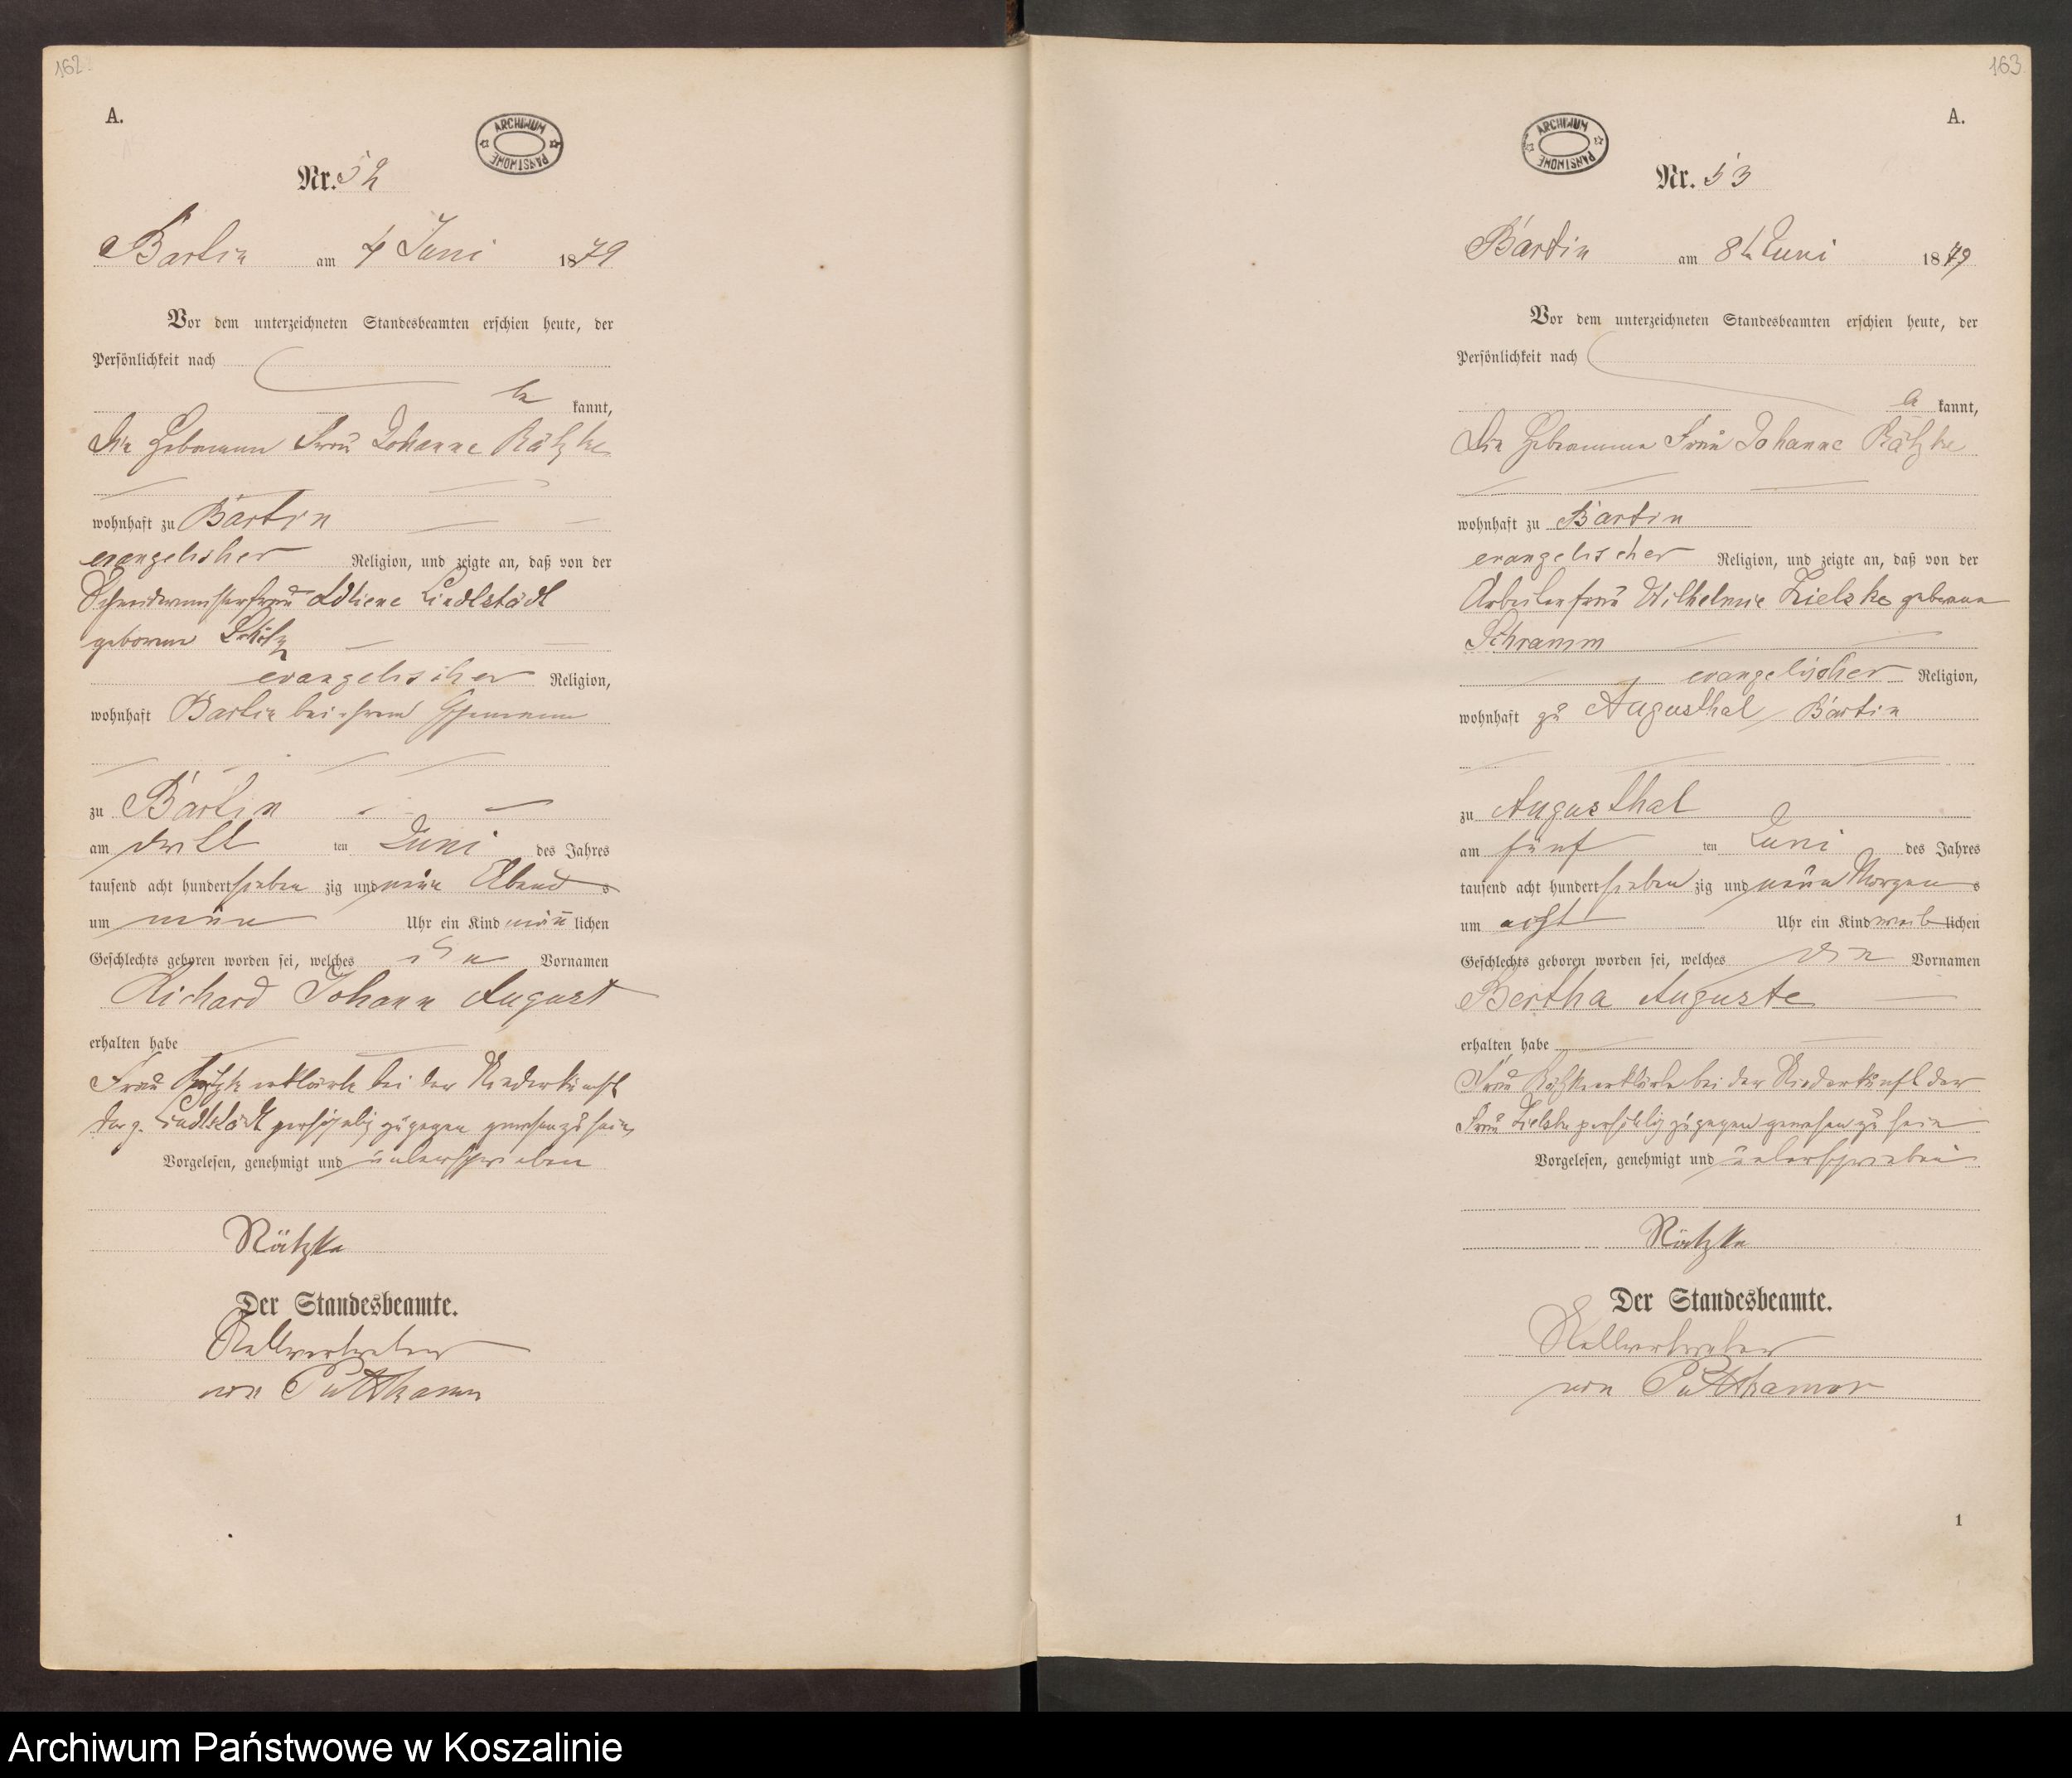 162
A.
ARCHIWUM PAŃSTWOWE
Nr. 52
Bartin am 4 Juni 1879
Vor dem unterzeichneten Standesbeamten erschien heute, der
Persönlichkeit nach
be kannt,
die Hebamme Frau Johanne Rätzke
wohnhaft zu Bartin
evangelischer Religion, und zeigte an, daß von der
Schneidermeisterfrau
geborene
evangelischer Religion,
wohnhaft Bartin bei ihrem Ehemann
zu Bartin
am dritt ten Juni des Jahres
tausend acht hundert sieben zig und neun Abends
um neun Uhr ein Kind männlichen
Geschlechts geboren worden sei, welches die Vornamen
Richard Johann August
erhalten habe
Frau Rätzke erklärte bei der Niederkunft
der p. persönlich zugegen gewesen zu sein
Vorgelesen, genehmigt und unterschrieben
Rätzke
Der Standesbeamte.
Stellvertreter
von Puttkamer
163
A.
ARCHIWUM PAŃSTWOWE
Nr. 53
Bartin am 8t Juni 1879
Vor dem unterzeichneten Standesbeamten erschien heute, der
Persönlichkeit nach
be kannt,
die Hebamme Frau Johanne Rätzke
wohnhaft zu Bartin
evangelischer Religion, und zeigte an, daß von der
Arbeiterfrau Wilhelmie Zielske geborene
Schramm
evangelischer Religion,
wohnhaft zu Augusthal Bartin
zu Augusthal
am fünf ten Juni des Jahres
tausend acht hundert sieben zig und neun Morgens
um acht Uhr ein Kind weiblichen
Geschlechts geboren worden sei, welches die Vornamen
Bertha Auguste
erhalten habe
Frau Rätzke erklärte bei der Niederkunft der
Frau Zielske persönlich zugegen gewesen zu sein
Vorgelesen, genehmigt und unterschrieben
Rätzke
Der Standesbeamte.
Stellvertreter
von Puttkamer
1
Archiwum Państwowe w Koszalinie